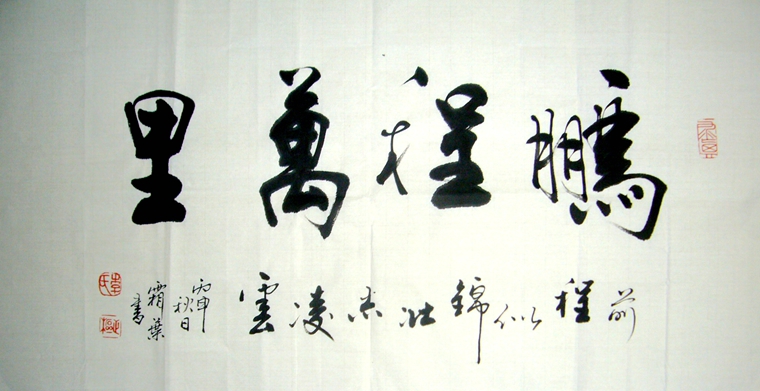 鵬程萬里
前程似錦壯志凌雲
丙申
秋日
霜葉
書